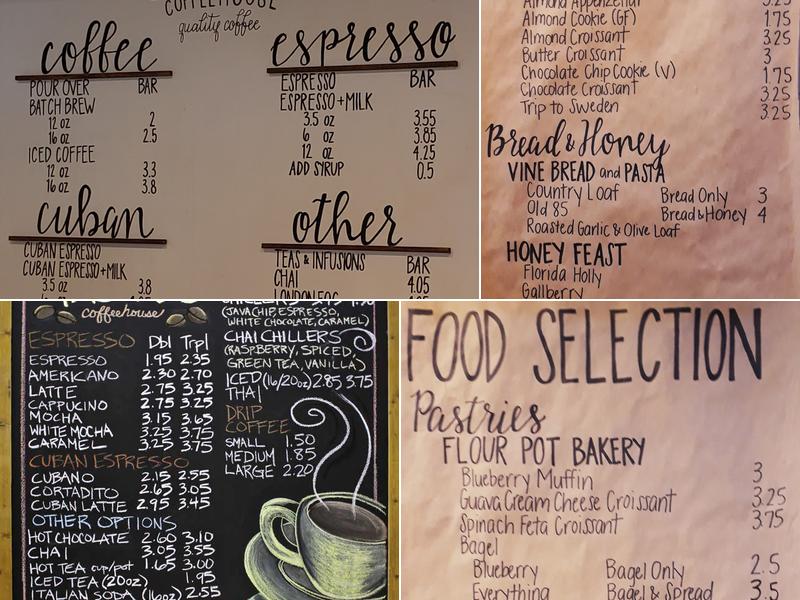 COFFEEHOUSE
quality coffee
coffee
POUR OVER BAR
BATCH BREW
12 oz 2
16 oz 2.5
ICED COFFEE
12 oz 3.3
16 oz 3.8
espresso
ESPRESSO BAR
ESPRESSO + MILK
3.5 oz 3.55
6 oz 3.85
12 oz 4.25
ADD SYRUP 0.5
cuban
CUBAN ESPRESSO
CUBAN ESPRESSO + MILK
3.5 oz 3.8
other
TEAS & INFUSIONS BAR
CHAI 4.05
LONDON FOG
Almond Appenzeller 3.25
Almond Cookie (GF) 1.75
Almond Croissant 3.25
Butter Croissant 3
Chocolate Chip Cookie (V) 1.75
Chocolate Croissant 3.25
Trip to Sweden 3.25
Bread & Honey
VINE BREAD and PASTA
Country Loaf Bread Only 3
Old 85 Bread & Honey 4
Roasted Garlic & Olive Loaf
HONEY FEAST
Florida Holly
Gallberry
coffeehouse
ESPRESSO Dbl Trpl
ESPRESSO 1.95 2.35
AMERICANO 2.30 2.70
LATTE 2.75 3.25
CAPPUCINO 2.75 3.25
MOCHA 3.15 3.65
WHITE MOCHA 3.25 3.75
CARAMEL 3.25 3.75
CUBAN ESPRESSO
CUBANO 2.15 2.55
CORTADITO 2.65 3.05
CUBAN LATTE 2.95 3.45
OTHER OPTIONS
HOT CHOCOLATE 2.60 3.10
CHAI 3.05 3.55
HOT TEA cup/pot 1.65 3.00
ICED TEA (20oz) 1.95
ITALIAN SODA (16oz) 2.55
(JAVA CHIP, ESPRESSO,
WHITE CHOCOLATE, CARAMEL)
CHAI CHILLERS
(RASPBERRY, SPICED,
GREEN TEA, VANILLA)
ICED (16/20oz) 2.85 3.75
THAI
DRIP
COFFEE
SMALL 1.50
MEDIUM 1.85
LARGE 2.20
FOOD SELECTION
Pastries
FLOUR POT BAKERY
Blueberry Muffin 3
Guava Cream Cheese Croissant 3.25
Spinach Feta Croissant 3.75
Bagel
Blueberry Bagel Only 2.5
Everything Bagel & Spread 3.5